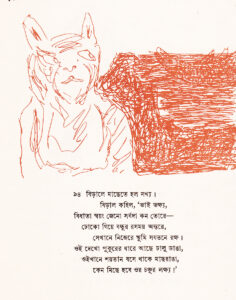 ২৪ বিড়ালে মাছেতে হল সখ্য।
বিড়াল কহিল, ‘ভাই ভক্ষ্য,
বিধাতা স্বয়ং জেনো সর্বদা কন তোরে—
ঢোকো গিয়ে বন্ধুর রসময় অন্তরে,
সেখানে নিজেরে তুমি সযতনে রক্ষ।
ওই দেখো পুকুরের ধারে আছে ঢালু ডাঙা,
ওইখানে শয়তান বসে থাকে মাছরাঙা,
কেন মিছে হবে ওর চঞ্চুর লক্ষ্য!’